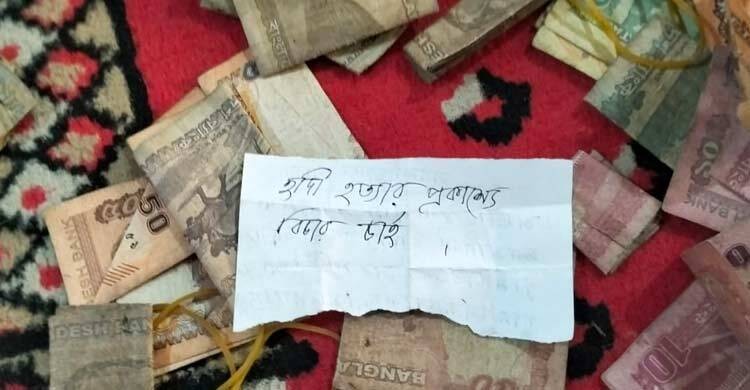 হাদি হত্যার প্রকাশ্যে
বিচার চাই ।
50
DESH BANK
DESH BAN
BANGLA
BANK
10